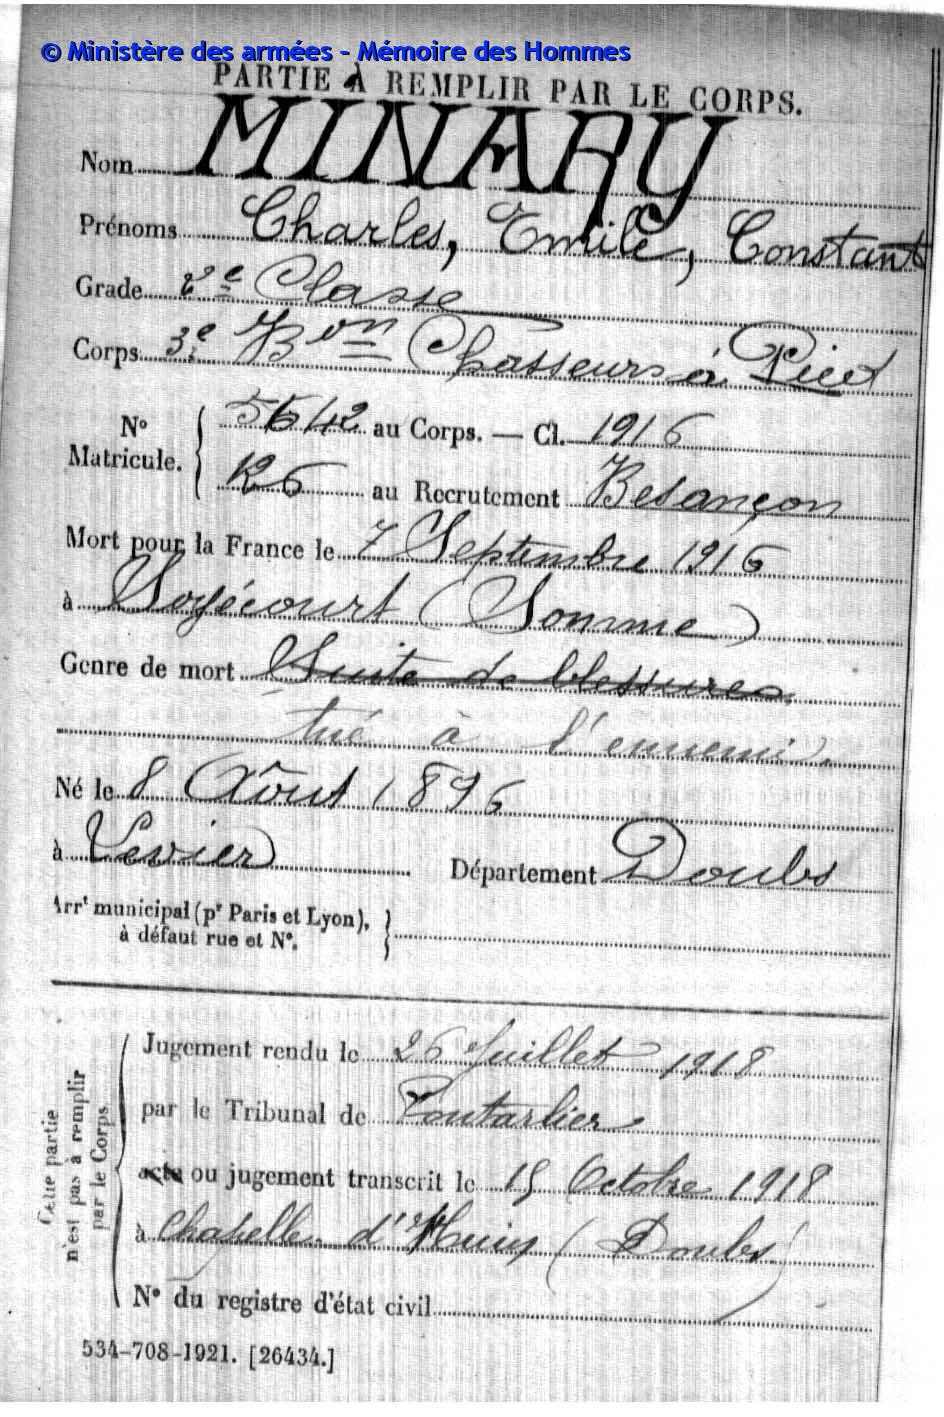 © Ministère des armées - Mémoire des Hommes
PARTIE À REMPLIR PAR LE CORPS.
Nom MINARY
Prénoms Charles, Emile, Constant
Grade 2e Classe
Corps 3e Bon Chasseurs à Pied
No Matricule. { 5642 au Corps. — Cl. 1916
126 au Recrutement Besançon
Mort pour la France le 7 Septembre 1916
à Soyécourt (Somme)
Genre de mort Suite de blessures
tué à l'ennemi.
Né le 8 Août 1896
à Levier Département Doubs
Arrt municipal (pr Paris et Lyon),
à défaut rue et No. }
Cette partie
n'est pas à remplir
par le Corps
Jugement rendu le 26 Juillet 1918
par le Tribunal de Pontarlier
acte ou jugement transcrit le 15 Octobre 1918
à Chapelle d'Huin (Doubs)
No du registre d'état civil
534-708-1921. [26434.]